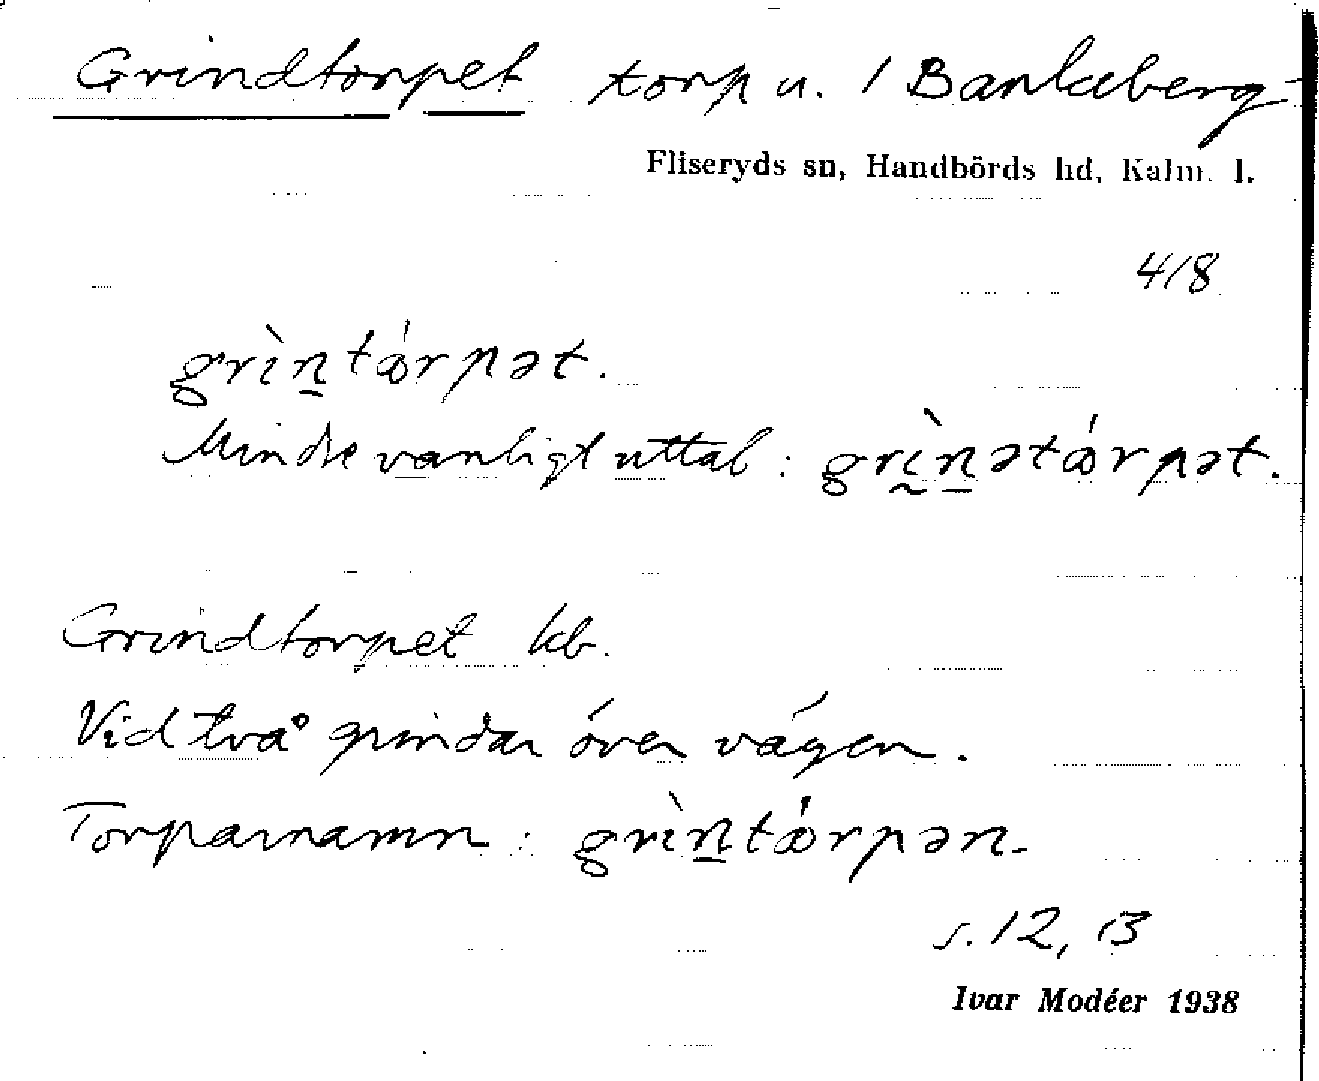 Grindtorpet torp u. 1 Bankeberg
Fliseryds sn, Handbörds hd, Kalm. l.
4/8
grìn̠tǿrpət.
Mindre vanligt uttal: grḭ̀n̠ətǿrpət.
Grindtorpet kb.
Vid två grindar över vägen.
Torparnamn: grìn̠tǿrpən.
s. 12, 13
Ivar Modéer 1938